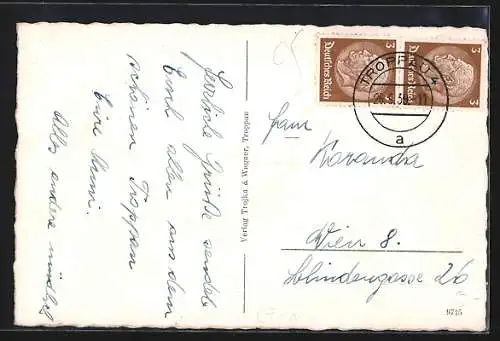 Herzliche Grüße sendet
Euch allen aus dem
schönen Troppau
Eure Mimi.
Alles andere mündlich
Verlag Trojka & Wagner, Troppau
Deutsches Reich
3
Deutsches Reich
3
TROPPAU 4
a
Fam.
Wien 8.
Blindengasse 26
9735